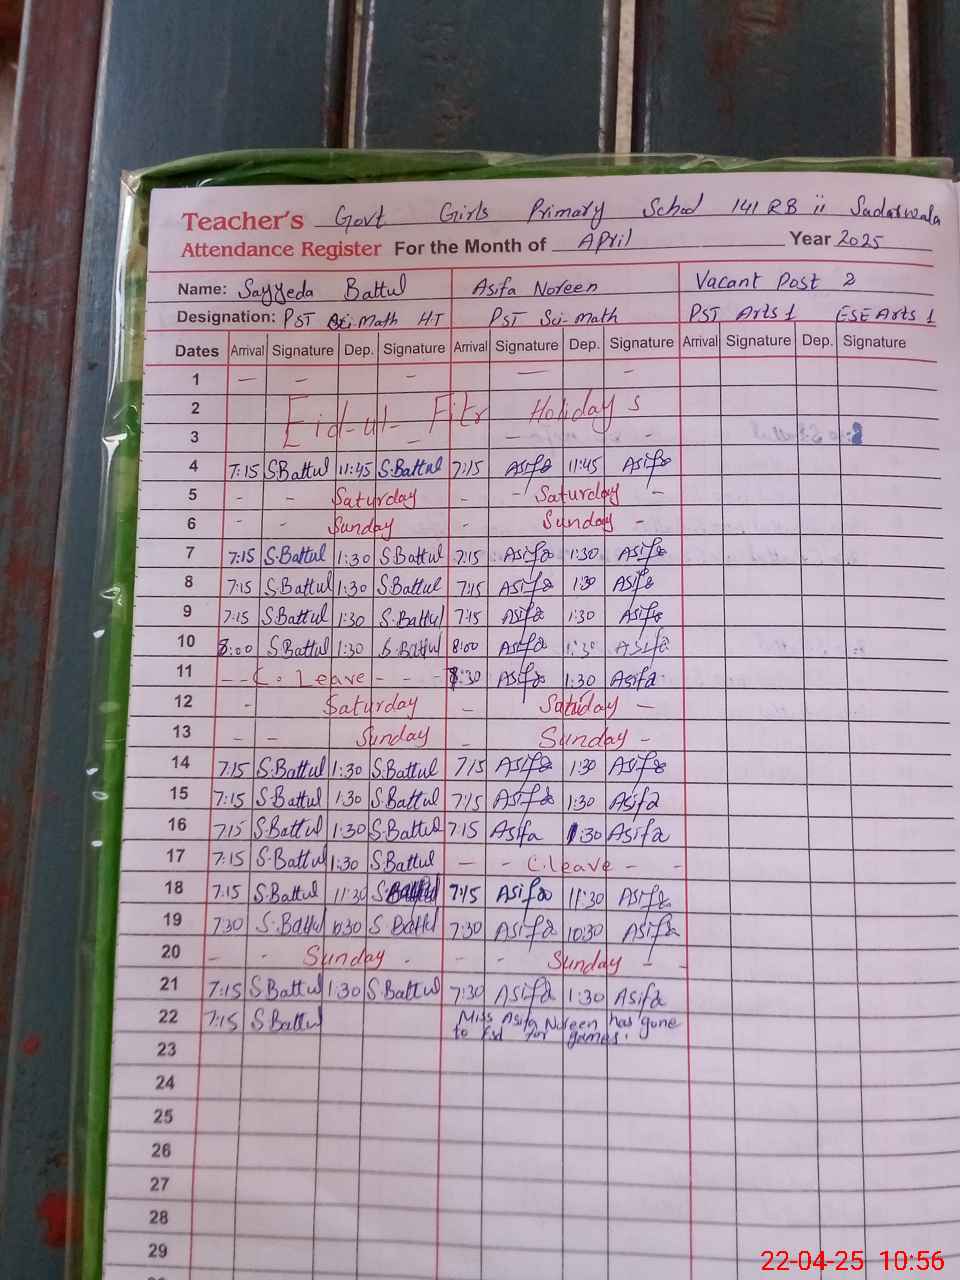 Teacher's Govt Girls Primary School 141 RB ii Sadarwala
Attendance Register For the Month of April Year 2025
Name: Sayyeda Battul Asifa Noreen Vacant Post 2
Designation: PST Sci-Math HT PST Sci-math PST Arts 1 ESE Arts 1
Dates Arrival Signature Dep. Signature Arrival Signature Dep. Signature Arrival Signature Dep. Signature
1 — — — — —
2 Eid-ul-Fitr Holidays
3 — — —
4 7:15 S.Battul 11:45 S.Battul 7:15 Asifa 11:45 Asifa
5 - - Saturday - - Saturday -
6 - - Sunday - Sunday -
7 7:15 S.Battul 1:30 S.Battul 7:15 Asifa 1:30 Asifa
8 7:15 S.Battul 1:30 S.Battul 7:15 Asifa 1:30 Asifa
9 7:15 S.Battul 1:30 S.Battul 7:15 Asifa 1:30 Asifa
10 8:00 S.Battul 1:30 S.Battul 8:00 Asifa 1:30 Asifa
11 - - C. Leave - - - 8:30 Asifa 1:30 Asifa
12 - Saturday - Saturday -
13 - - Sunday - Sunday -
14 7:15 S.Battul 1:30 S.Battul 7:15 Asifa 1:30 Asifa
15 7:15 S.Battul 1:30 S.Battul 7:15 Asifa 1:30 Asifa
16 7:15 S.Battul 1:30 S.Battul 7:15 Asifa 1:30 Asifa
17 7:15 S.Battul 1:30 S.Battul - - C.leave - -
18 7:15 S.Battul 11:30 S.Battul 7:15 Asifa 11:30 Asifa
19 7:30 S.Battul 10:30 S.Battul 7:30 Asifa 10:30 Asifa
20 - - Sunday - - - Sunday - -
21 7:15 S.Battul 1:30 S.Battul 7:30 Asifa 1:30 Asifa
22 7:15 S.Battul Miss Asifa Noreen has gone
to Fsd for games.
23
24
25
26
27
28
29
22-04-25 10:56